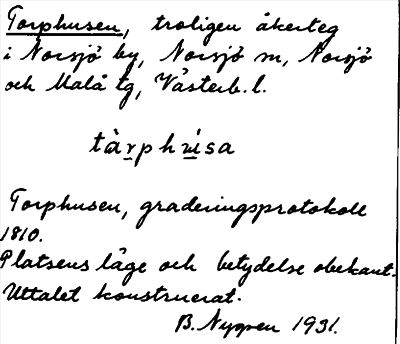 Torphusen, troligen åkerteg
i Norsjö by, Norsjö sn, Norsjö
och Malå tg, Västerb. l.
tàrphu̇sa
Torphusen, graderingsprotokoll
1810.
Platsens läge och betydelse obekant.
Uttalet konstruerat.
B. Nygren 1931.